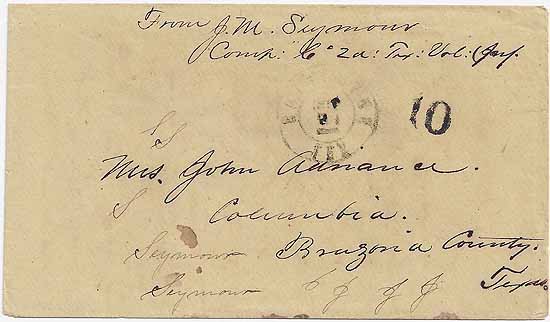 From J. M. Seymour
Comp: C° 2d: Tex: Vol: Inf.
10
TEX
S S
Mrs. John Adriance.
S Columbia.
Seymour Brazoria County.
Seymour Texas